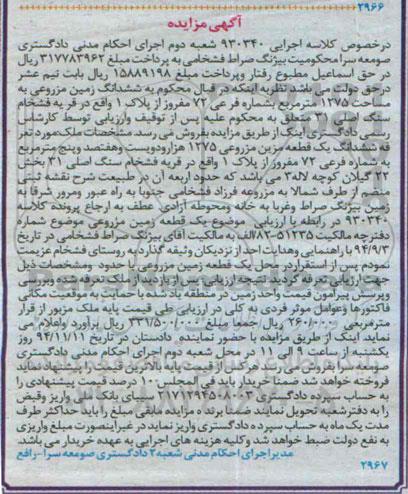 ۲۹۶۶
آگهی مزایده
درخصوص کلاسه اجرایی ۹۳۰۳۴۰ شعبه دوم اجرای احکام مدنی دادگستری
صومعه سرا محکومیت بیژنگ صراط فشخامی به پرداخت مبلغ ۳۱۷۷۸۳۹۶۲ ریال
در حق اسماعیل مطبوع رفتار وپرداخت مبلغ ۱۵۸۸۹۱۹۸ ریال بابت نیم عشر
درحق دولت می باشد نظربه اینکه در قبال محکوم به ششدانگ زمین مزروعی به
مساحت ۱۲۷۵ مترمربع بشماره فرعی ۷۲ مفروز از پلاک ۱ واقع در قریه فشخام
سنگ اصلی ۳۱ متعلق به محکوم علیه پس از توقیف وارزیابی توسط کارشناس
رسمی دادگستری اینک از طریق مزایده بفروش می رسد مشخصات ملک مورد تعر
فه ششدانگ یک قطعه مزین مزروعی ۱۲۷۵ هزارودویست وهفتصد وپنج مترمربع
به شماره فرعی ۷۲ مفروز از پلاک ۱ واقع در قریه فشخام سنگ اصلی ۳۱ بخش
۲۲ گیلان کوچه لاله ۳ می باشد که حدود اربعه آن در طبیعت شرح نقشه ثبتی
منضم از طرف شمالا به مزروعه فرزاد فشخامی جنوبا به راه عبور ومرور شرقا به
زمین بیژنگ صراط وغربا به خانه ومحوطه آزادی عطف به ارجاع پرونده کلاسه
۹۳۰۳۴۰ در رابطه با ارزیابی موضوع یک قطعه زمین مزروعی موضوع شماره
دفترچه مالکیت ۵۱۲۳۵-۸۲ الف به مالکیت آقای بیژنگ صراط فشخامی در تاریخ
۹۴/۹/۳ با راهنمایی وهدایت احد از نزدیکان وثیقه گذار به روستای فشخام عزیمت
نمودم پس از استقرار در محل یک قطعه زمین مزروعی با حدود ومشخصات ذیل
جهت ارزیابی تعرفه گردید نتیجه ارزیابی پس از بازدید از ملک تعرفه شده وبررسی
وپرسش پیرامون قیمت واحد زمین در منطقه یاد شده با حمایت به موقعیت مکانی
فاکتورها وعوامل موثر فردی به کلی در ارزیابی طی قیمت پایه ملک مزبور از قرار
مترمربعی ۲۶۰/۰۰۰ ریال جمعا مبلغ ۳۳۱/۵۰۰/۰۰۰ ریال برآورد واعلام می
نماید اینک از طریق مزایده با حضور نماینده دادستان در تاریخ ۹۴/۱۱/۱۱ روز
یکشنبه از ساعت ۹ الی ۱۱ در محل شعبه دوم اجرای احکام مدنی دادگستری
صومعه سرا بفروش می رسد هرکس از قیمت پایه بالاترین قیمت را پیشنهاد نماید
فروخته خواهد شد ضمنا خریدار باید فی المجلس ۱۰ درصد قیمت پیشنهادی را
به حساب سپرده دادگستری ۲۱۷۱۲۹۴۵۰۸۰۰۳ سیبای بانک ملی واریز وقبض
را به دفتر شعبه تحویل نمایند ضمنا برنده مزایده مابقی مبلغ را باید حداکثر ظرف
مدت یک ماه به حساب سپرده دادگستری واریز نماید در غیر اینصورت مبلغ واریزی
به نفع دولت ضبط خواهد شد وکلیه هزینه های اجرایی به عهده خریدار می باشد.
مدیر اجرای احکام مدنی شعبه ۲ دادگستری صومعه سرا-رافع
۲۹۶۷